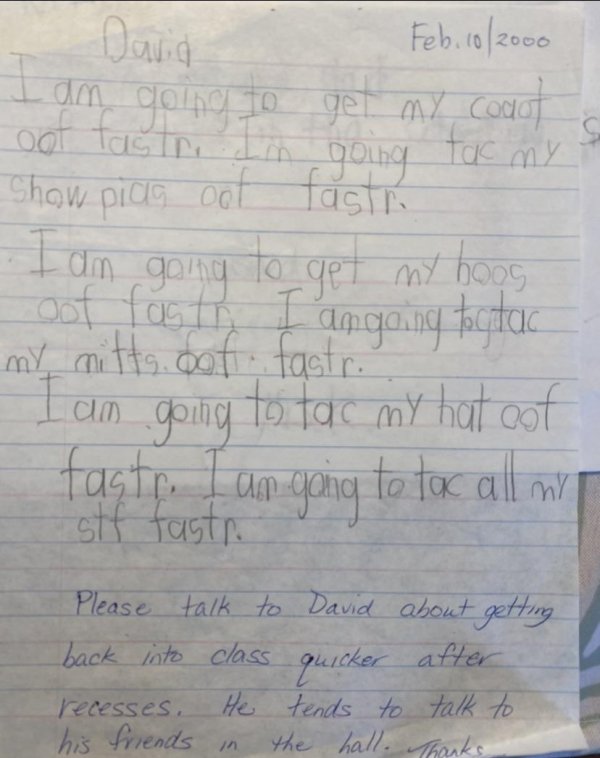 David Feb. 10/2000
I am going to get my coaot
oof fastr. I'm going tac my
show pias oof fastr.
I am going to get my boos
oof fastr. I am going togtac
my mitts. oof. fastr.
I am going to tac my hat oof
fastr. I am going to tac all my
stf fastr.
Please talk to David about getting
back into class quicker after
recesses. He tends to talk to
his friends in the hall. Thanks